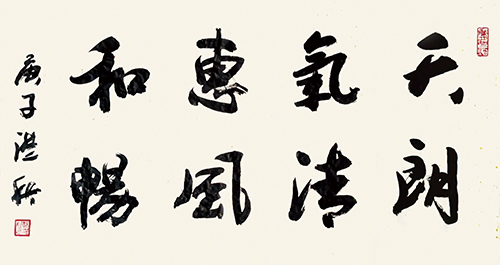 天朗
氣清
惠風
和暢
庚子